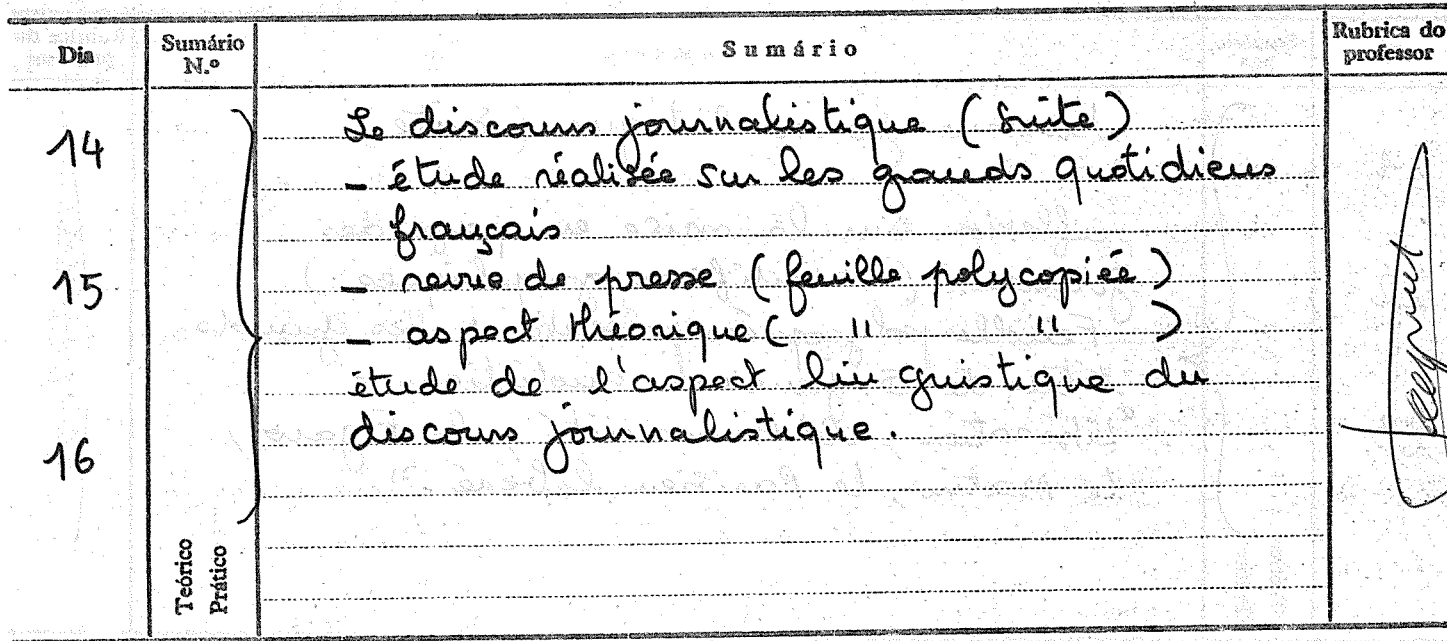 Dia Sumário N.º Sumário Rubrica do professor
14 Le discours journalistique (suite)
- étude réalisée sur les grands quotidiens
français
15 - revue de presse (feuille polycopiée)
- aspect théorique ( " " )
étude de l'aspect linguistique du
discours journalistique.
16
Teórico
Prático